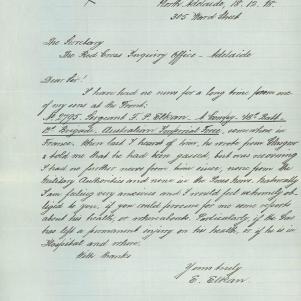 North Adelaide, 18.12.15.
305 Ward Street
The Secretary
The Red Cross Inquiry Office - Adelaide
Dear Sir!
I have had no news for a long time from one
of my sons at the Front:
Sergeant F. P. Elkan - A Company - 48th Batt.
Brigade - Australian Imperial Force, somewhere in
France. When last I heard of him, he wrote from
told me that he had been gassed, but was recovering
I had no further news from him since, none from the
Military Authorities and none in the News. Naturally
I am feeling very anxious and I would feel extremely ob-
liged to you, if you could procure for me some reports
about his health, or whereabouts. Particularly, if the Gas
has left a permanent injury on his health, or if he is in
Hospital and where.
With thanks
Yours truly
E. Elkan